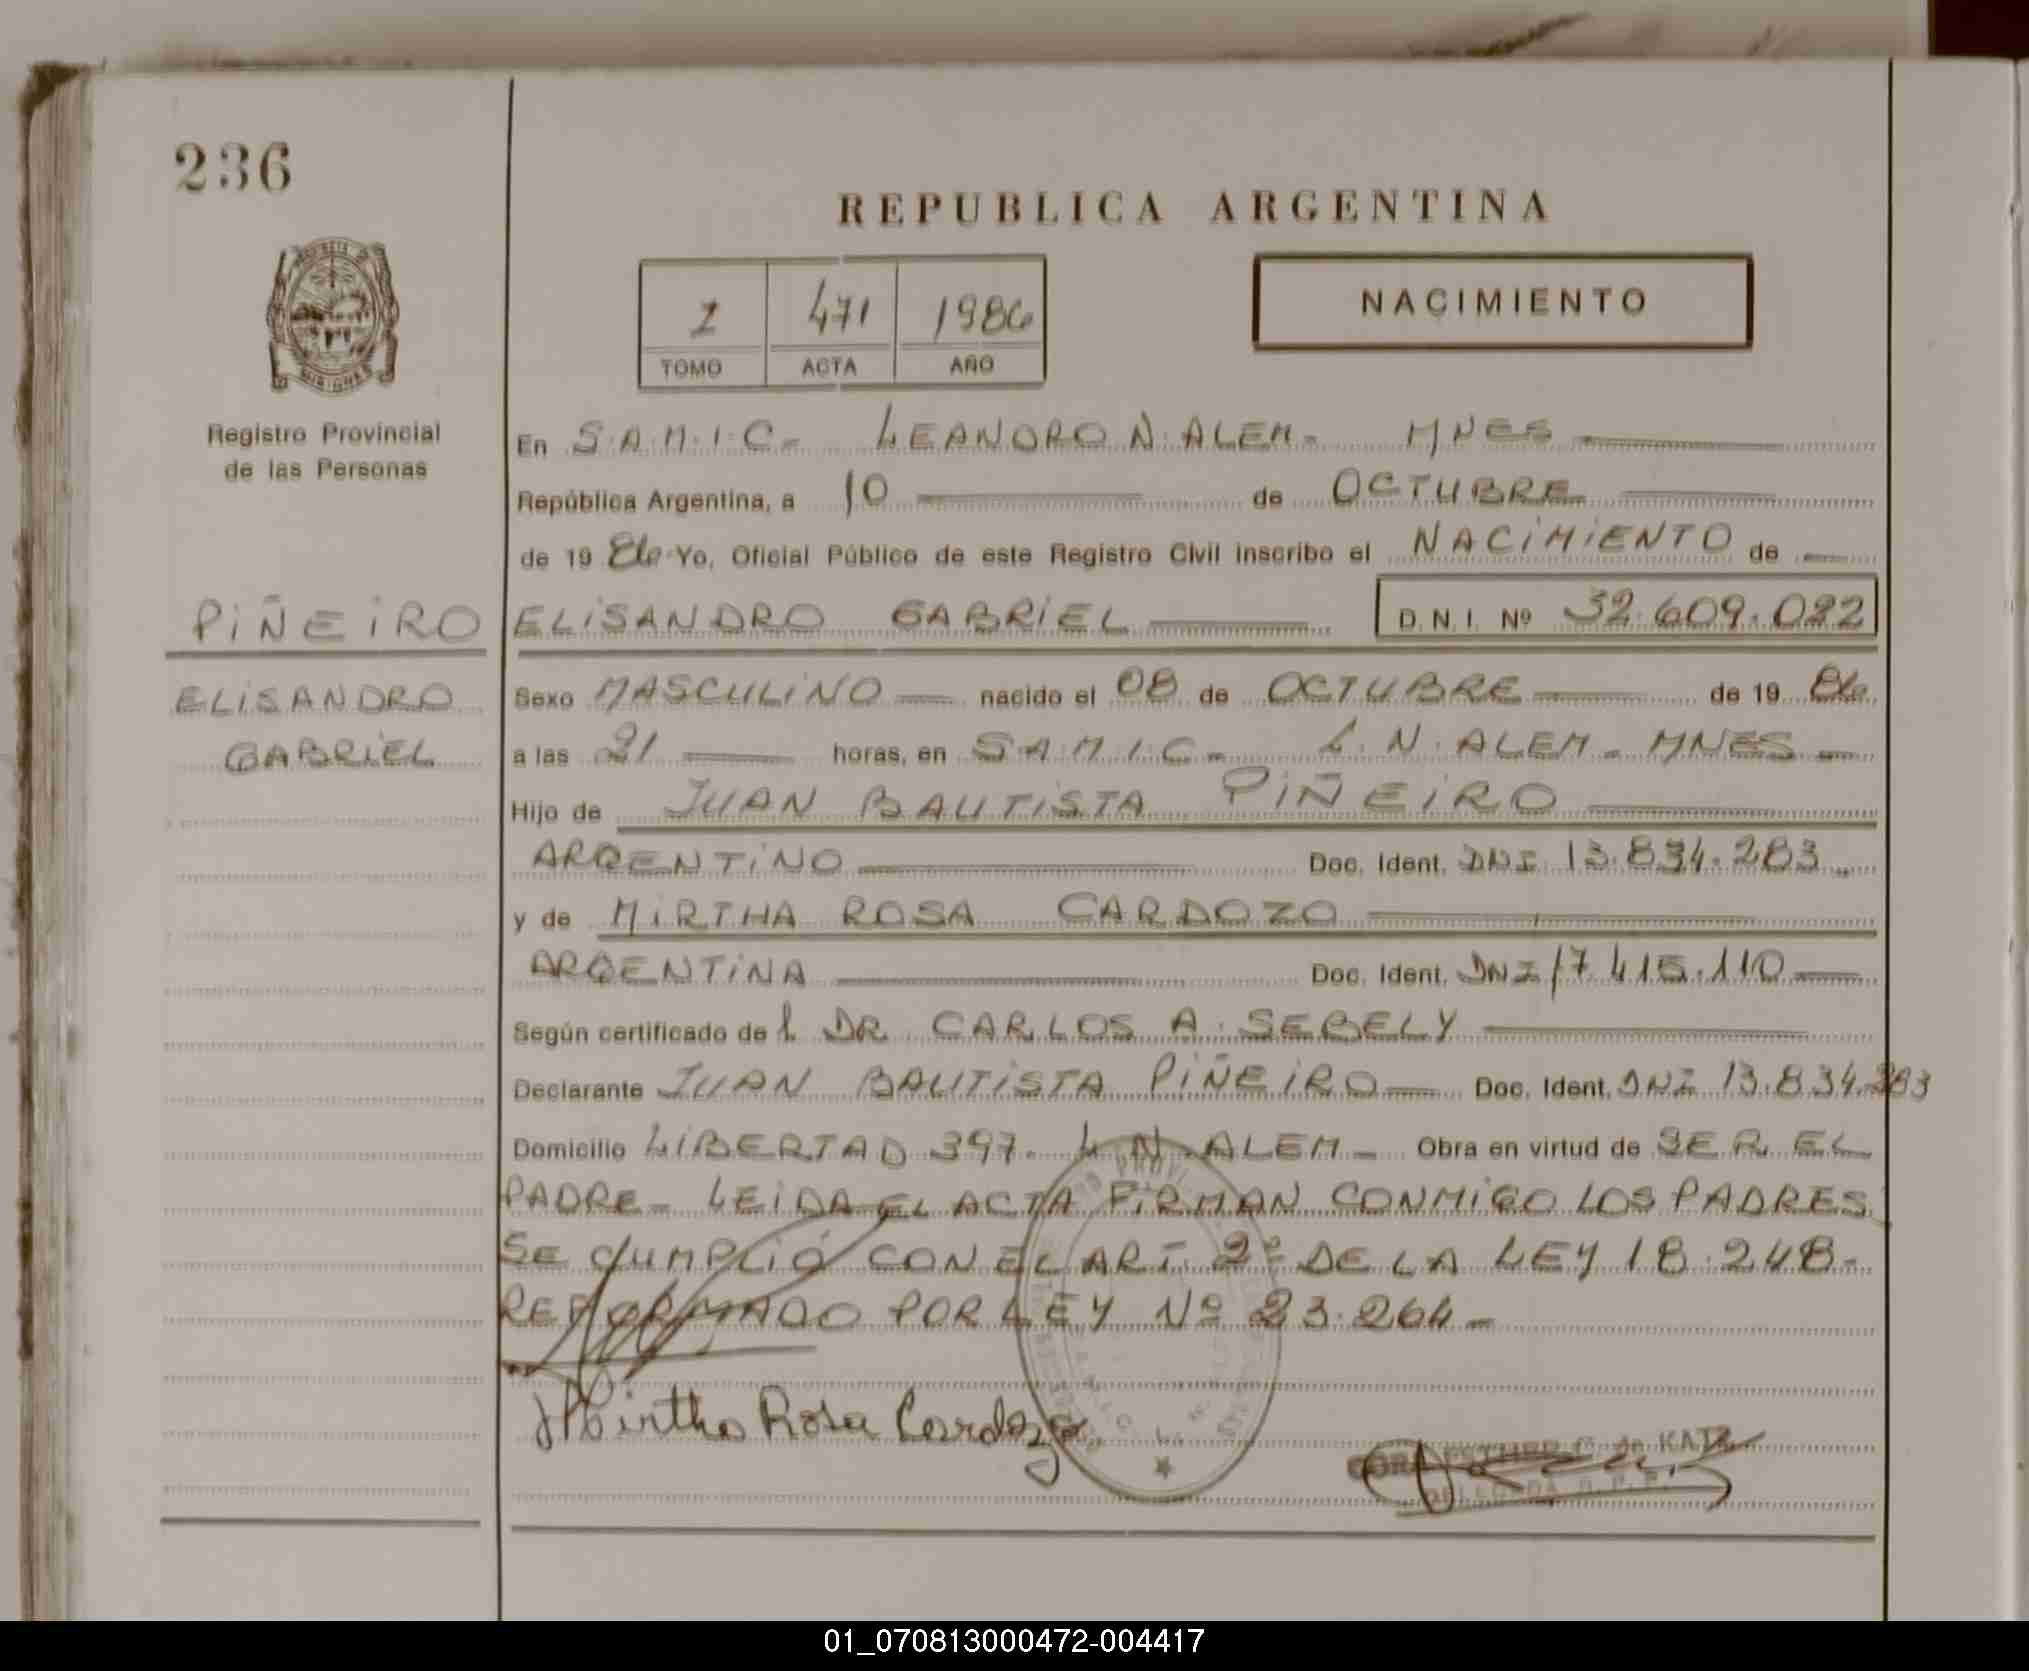 236
REPUBLICA ARGENTINA
NACIMIENTO
I 471 1986
TOMO ACTA AÑO
Registro Provincial
de las Personas
En S.A.M.I.C- LEANDRO N. ALEM- MNES
República Argentina, a 10 de OCTUBRE
de 19 86 Yo, Oficial Público de este Registro Civil inscribo el NACIMIENTO de
PIÑEIRO ELISANDRO GABRIEL D.N.I. Nº 32.609.022
ELISANDRO
GABRIEL
Sexo MASCULINO nacido el 08 de OCTUBRE de 19 86
a las 21 horas, en S.A.M.I.C- L. N. ALEM- MNES
Hijo de JUAN BAUTISTA PIÑEIRO
ARGENTINO Doc. Ident. DNI 13.834.283
y de MIRTHA ROSA CARDOZO
ARGENTINA Doc. Ident. DNI 17.415.110
Según certificado de L DR CARLOS A. SEBELY
Declarante JUAN BAUTISTA PIÑEIRO Doc. Ident. DNI 13.834.283
Domicilio LIBERTAD 397- L. N. ALEM- Obra en virtud de SER EL
PADRE- LEIDA EL ACTA FIRMAN CONMIGO LOS PADRES
SE CUMPLIÓ CON EL ART. 2º DE LA LEY 18.248-
REFORMADO POR LEY Nº 23.264-
Mirtha Rosa Cardozo
de KATZ
01_070813000472-004417